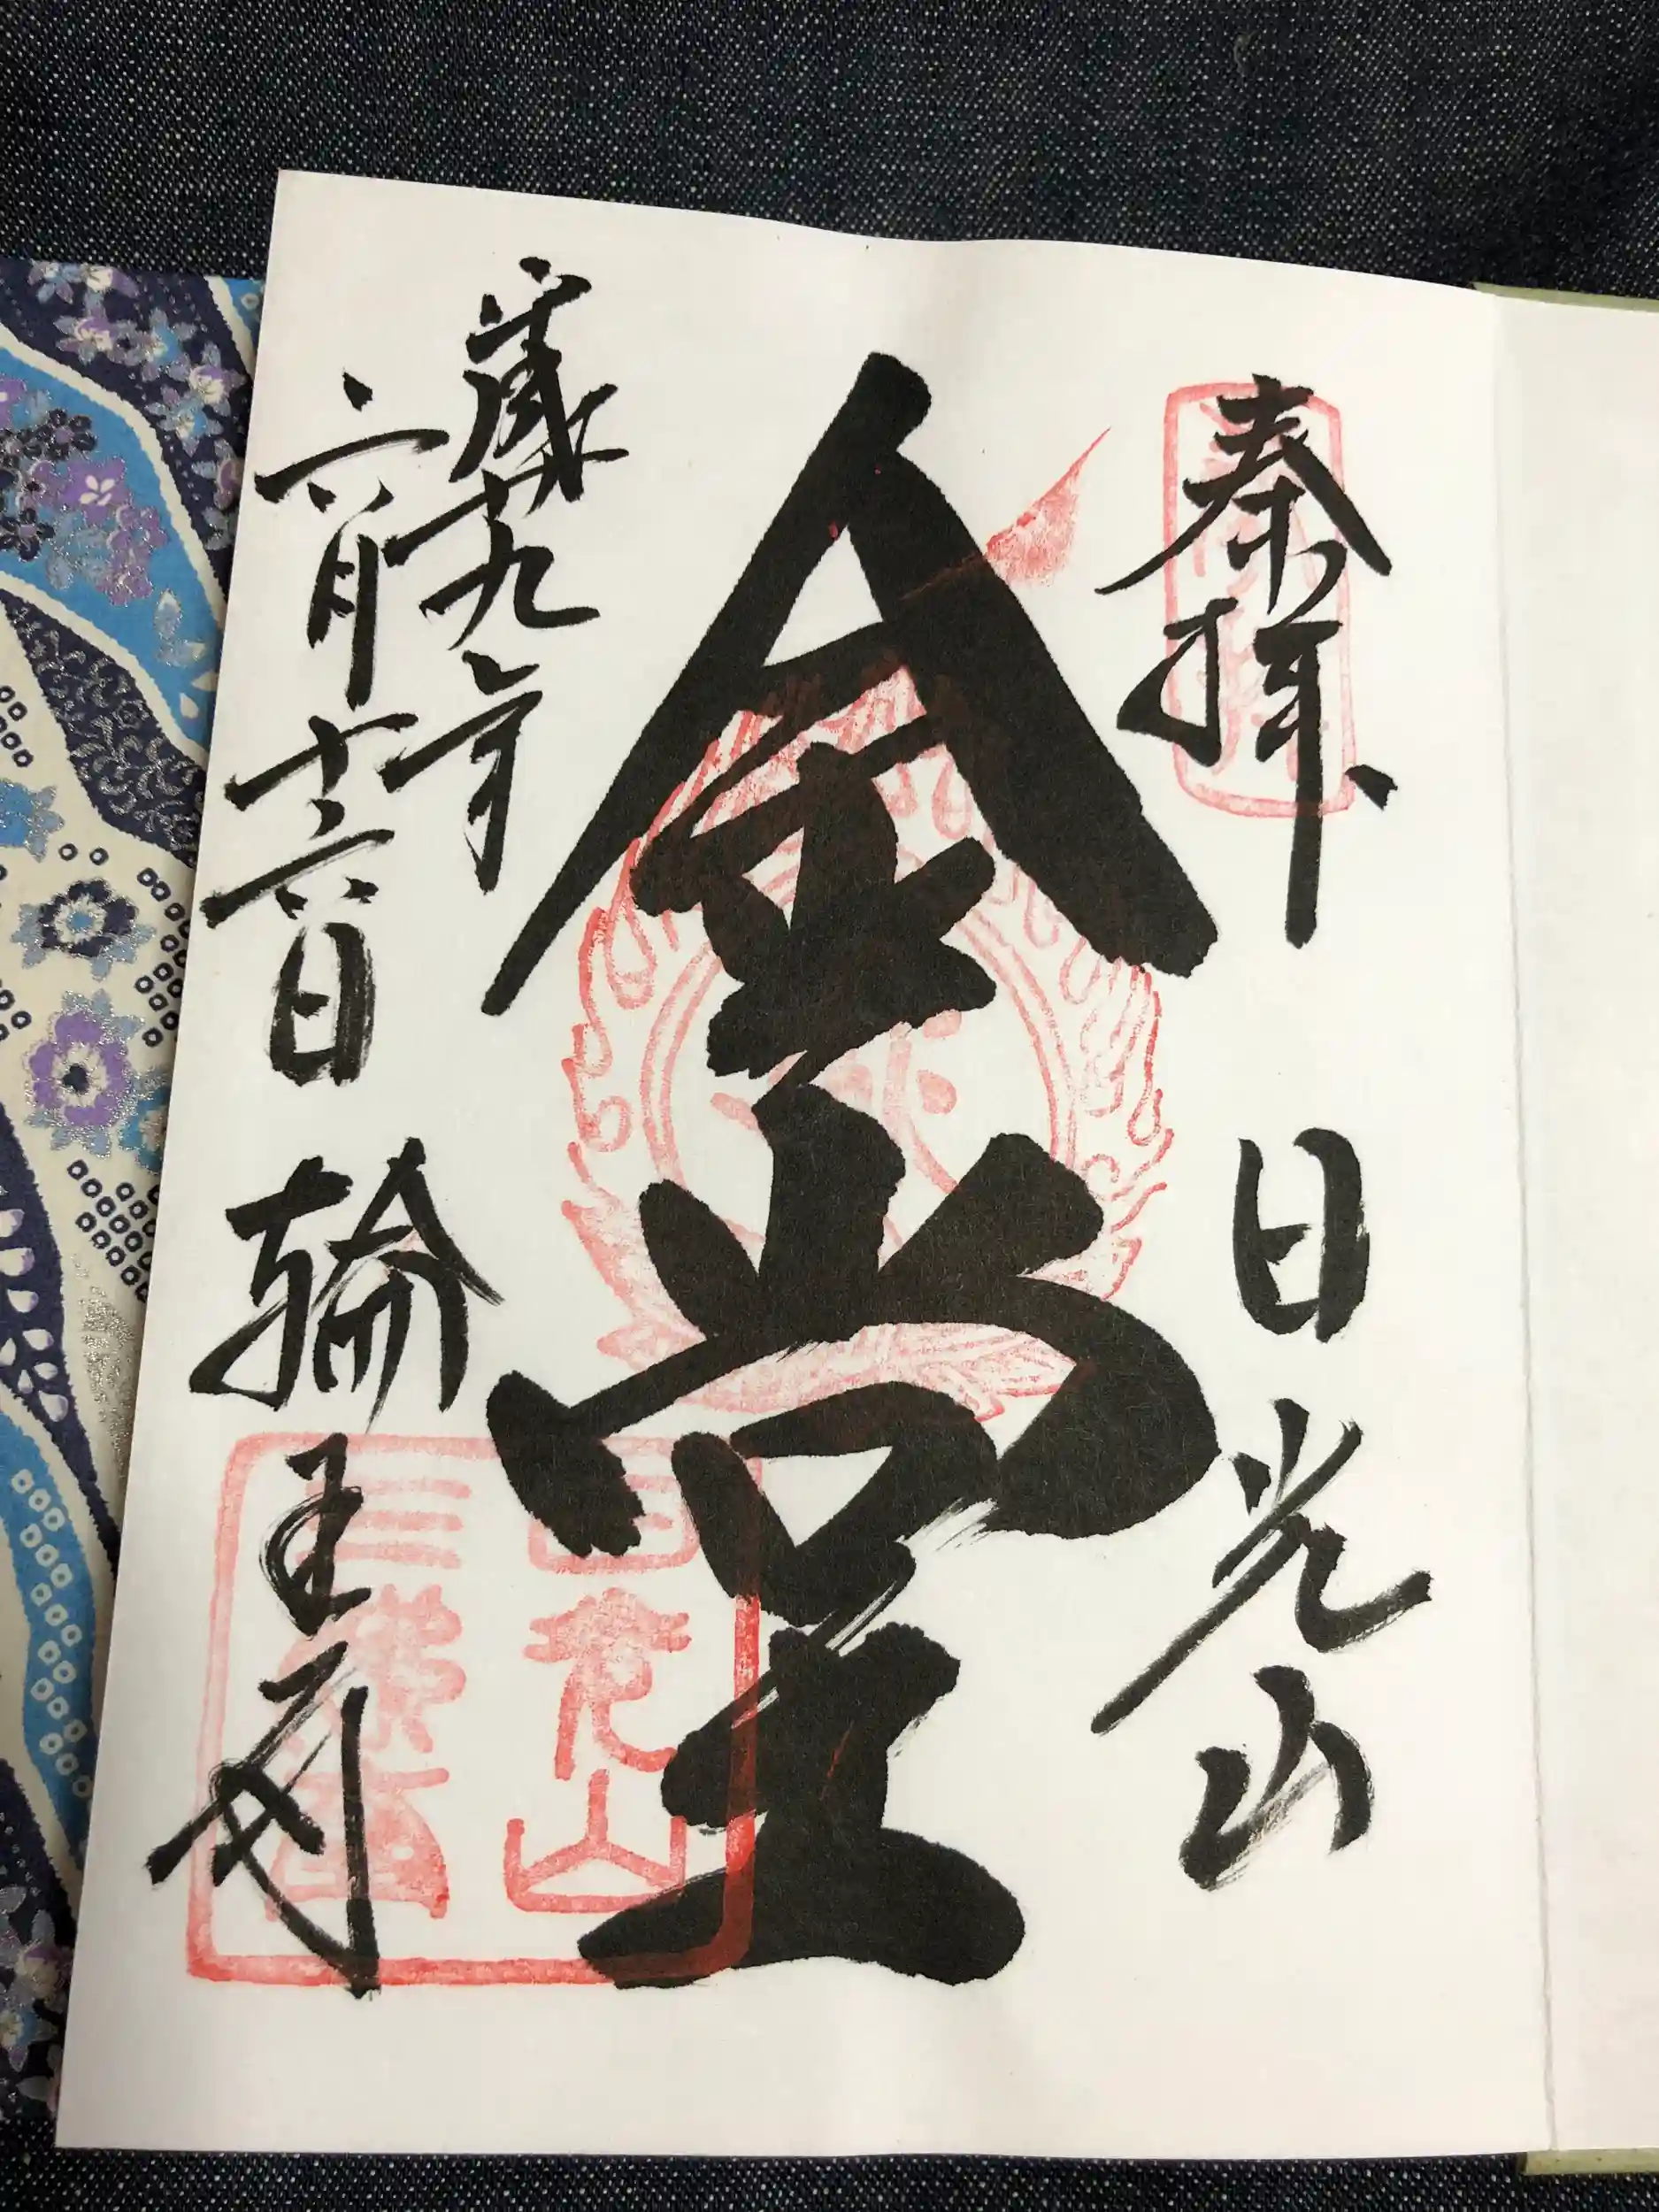 奉拝
日光山
金堂
平成廿九年
六月十六日
輪王寺
日光山
三佛堂